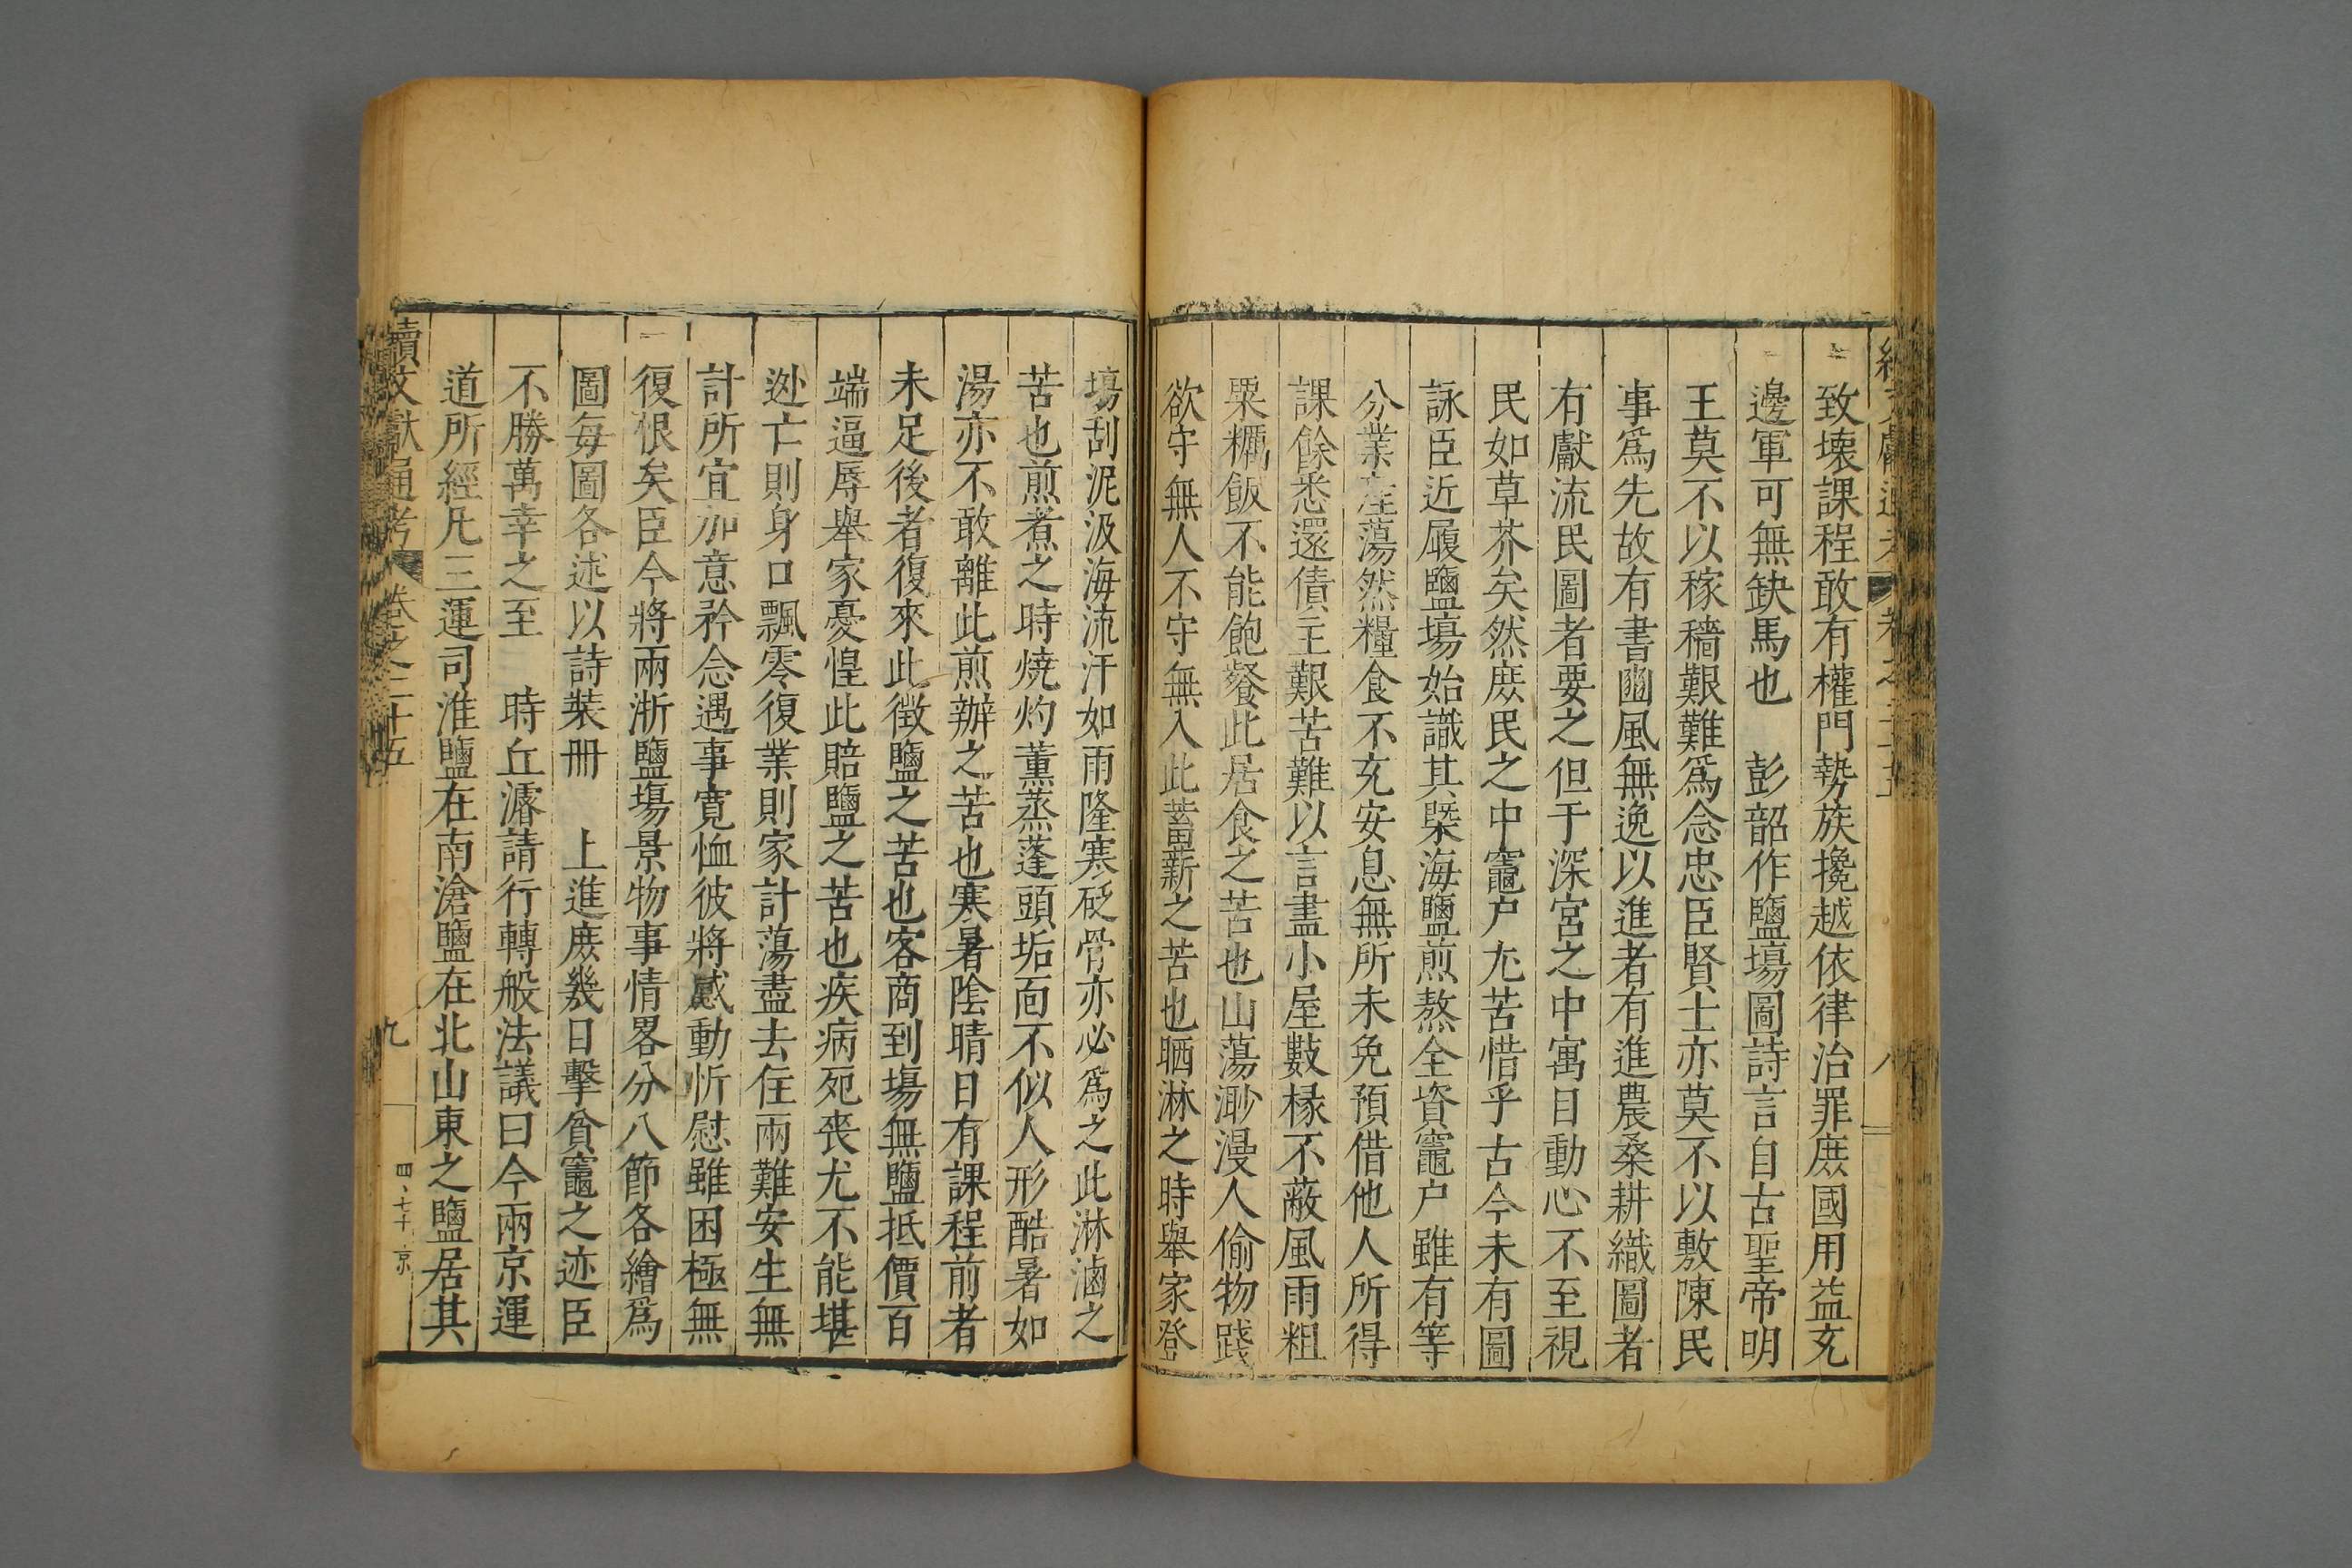 致壞課程敢有權門勢族攙越依律治罪庶國用益充
邊軍可無缺馬也　彭韶作鹽塲圖詩言自古聖帝明
王莫不以稼穡艱難爲念忠臣賢士亦莫不以敷陳民
事爲先故有書豳風無逸以進者有進農桑耕織圖者
有獻流民圖者要之但于深宮之中寓目動心不至視
民如草芥矣然庶民之中竈户尤苦惜乎古今未有圖
詠臣近履鹽塲始識其槩海鹽煎熬全資竈户雖有等
分業産蕩然糧食不充安息無所未免預借他人所得
課餘悉還債主艱苦難以言盡小屋數椽不蔽風雨粗
粟糲飯不能飽餐此居食之苦也山蕩渺漫人偷物踐
欲守無人不守無入此蓄薪之苦也晒淋之時舉家登
塲刮泥汲海流汗如雨隆寒砭骨亦必爲之此淋滷之
苦也煎煮之時燒灼薰蒸蓬頭垢面不似人形酷暑如
湯亦不敢離此煎辦之苦也寒暑陰晴日有課程前者
未足後者復來此徵鹽之苦也客商到塲無鹽抵價百
端逼辱舉家憂惶此賠鹽之苦也疾病死丧尤不能堪
迯亡則身口飄零復業則家計蕩盡去住兩難安生無
計所宜加意矜念遇事寬恤彼將感動忻慰雖困極無
復恨矣臣今將兩淛鹽塲景物事情畧分八節各繪爲
圖每圖各述以詩裝册　上進庶幾日擊貧竈之迹臣
不勝萬幸之至　時丘濬請行轉般法議曰今兩京運
道所經凡三運司淮鹽在南滄鹽在北山東之鹽居其
續文獻通考　卷之二十五　九　四、七十　京